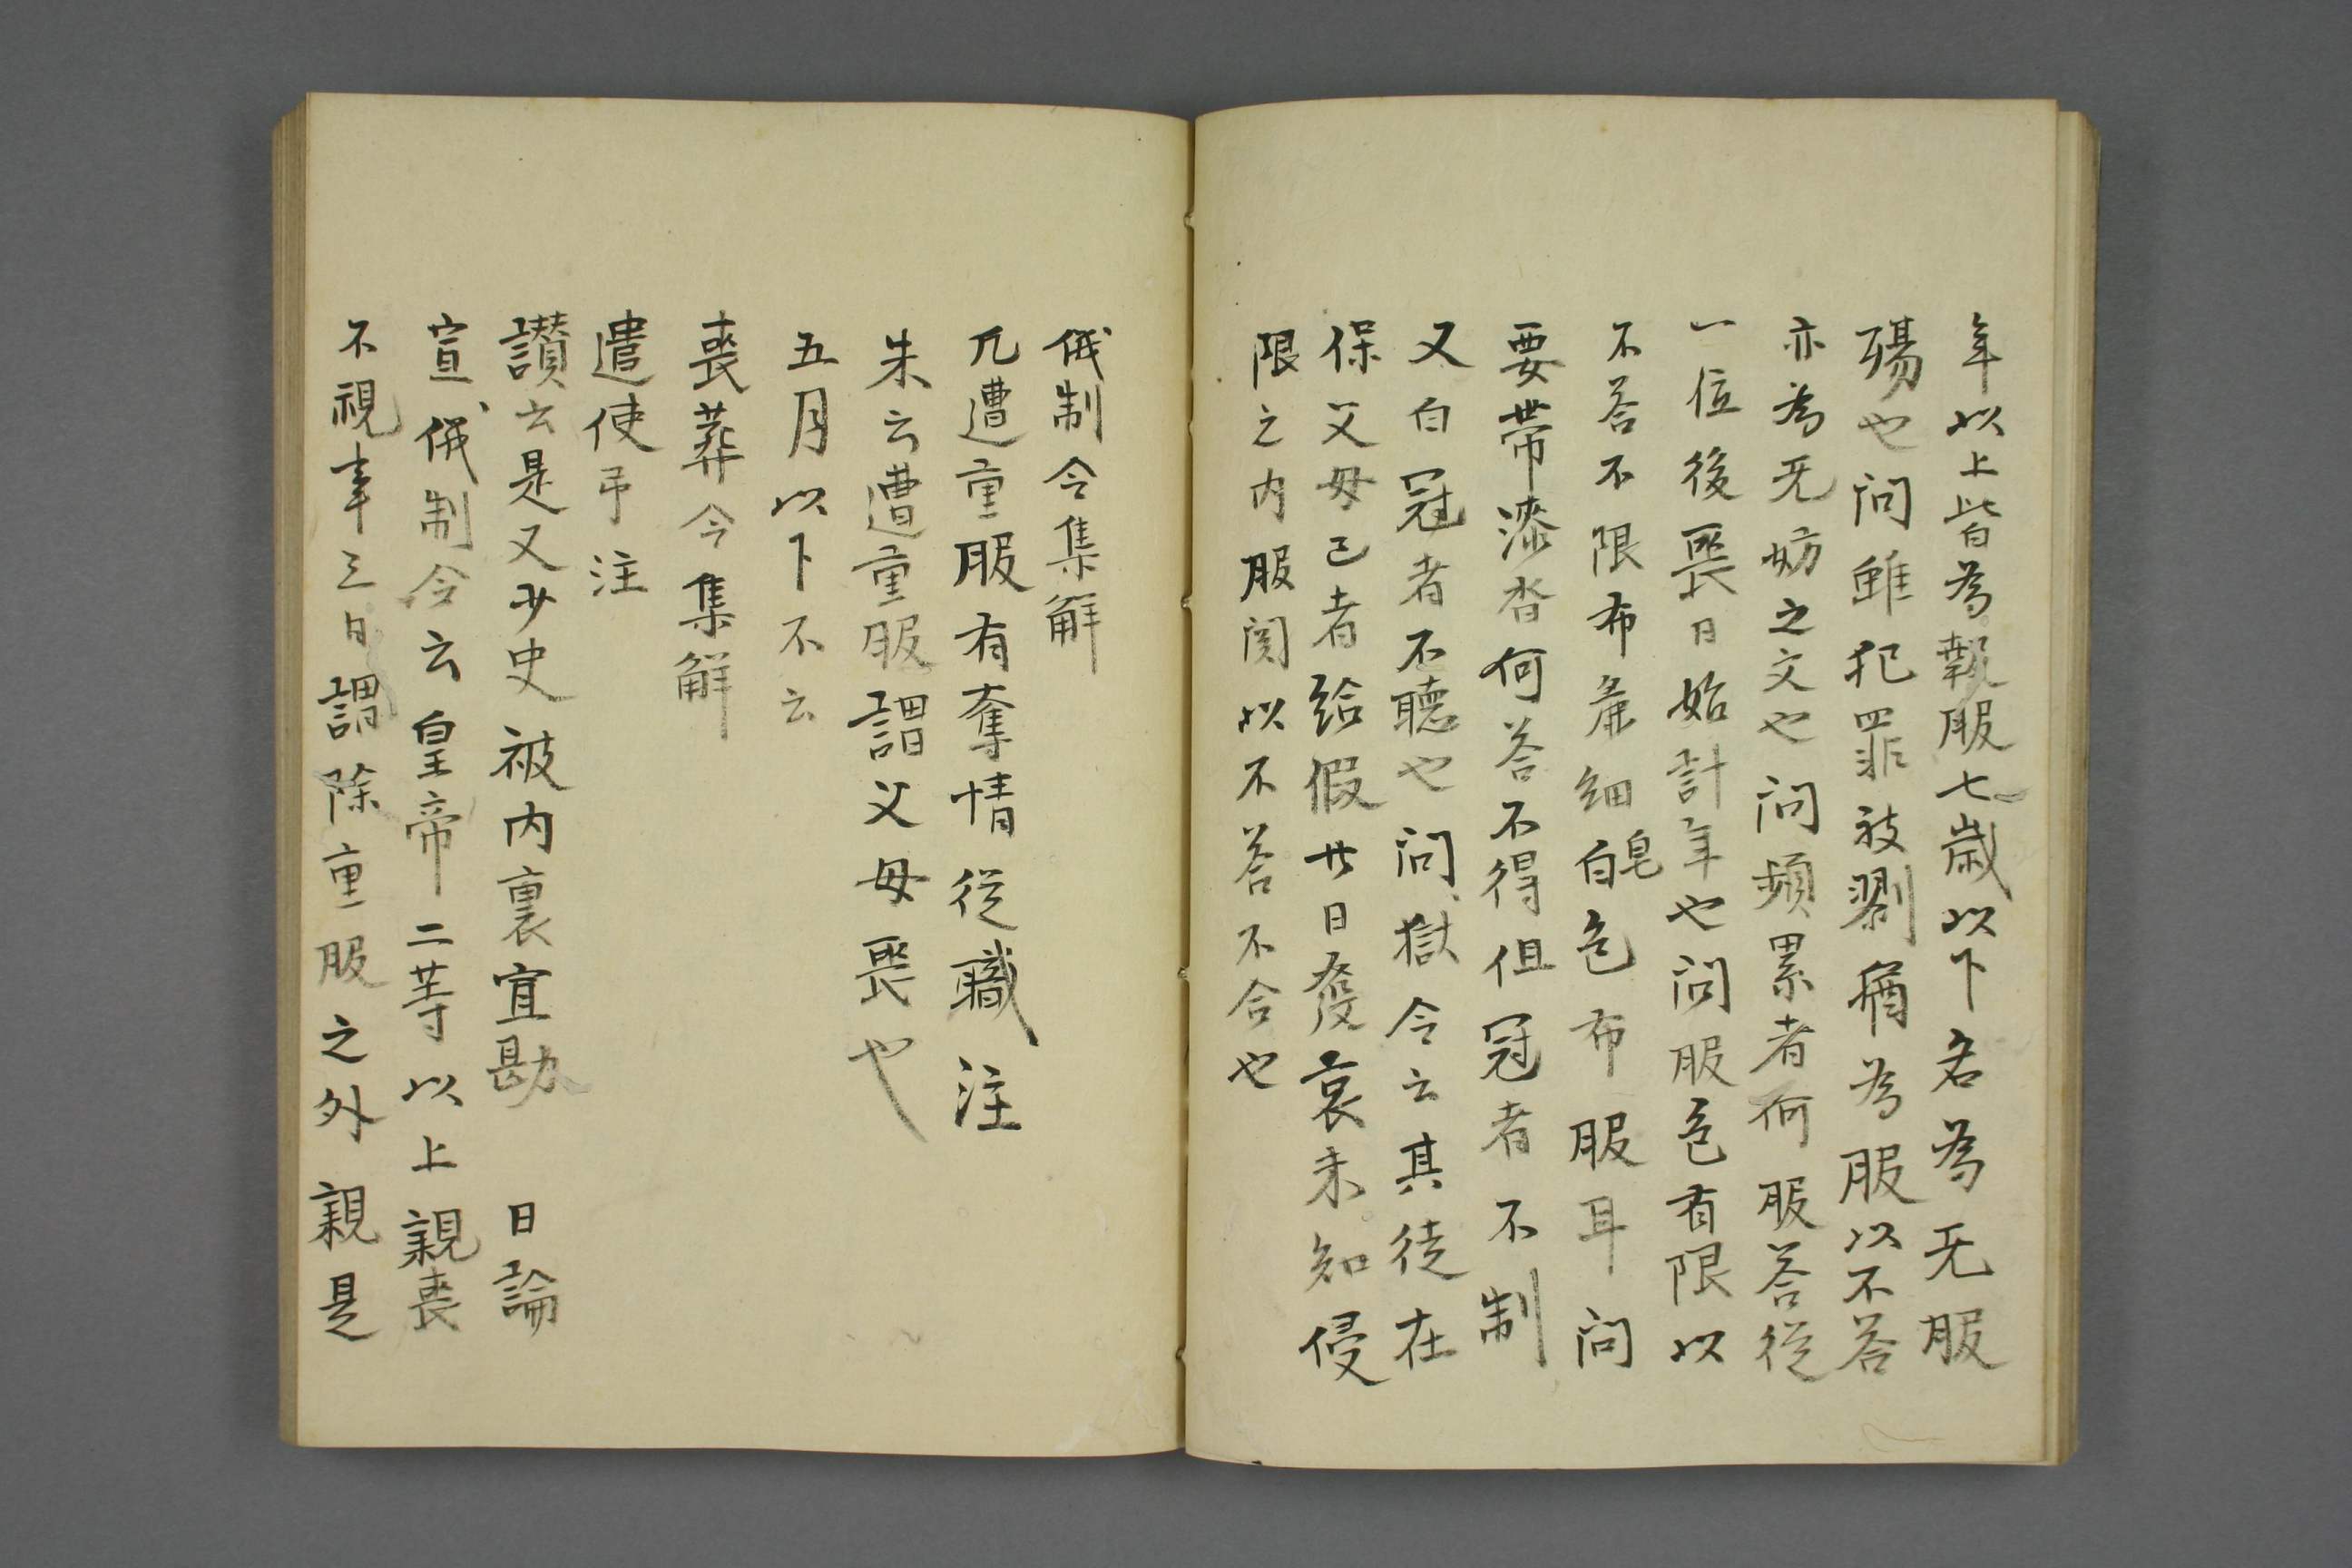 年以上皆為報服七歳以下名為无服
殤也問雖犯罪被劉猶為服以不答
亦為无妨之文也問頻累者何服答従
一位後喪日始計年也問服色有限以
不答不限布麁細白皂色布服耳問
要帯漆沓何答不得但冠者不制
又白冠者不聴也問獄令云其徒在
保父母已者給假廿日發哀未知侵
限之内服闋以不答不合也
儀制令集解
凡遭重服有奪情従職注
朱云遭重服謂父母喪也
五月以下不云
喪葬令集解
遣使弔注
讃云是又少史被内裏宣勘 日論
宣儀制令云皇帝二等以上親喪
不視事三日謂除重服之外親是